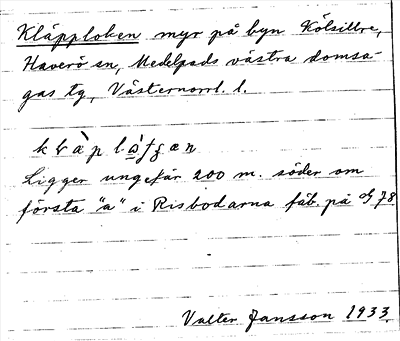 Kläpploken myr på byn Kölsillre,
Haverö sn, Medelpads västra domsa-
gas tg, Västernorrl. l.
Ligger ungefär 200 m. söder om
första "a" i Risbodarna fäb. på G 78
Valter Jansson 1933.